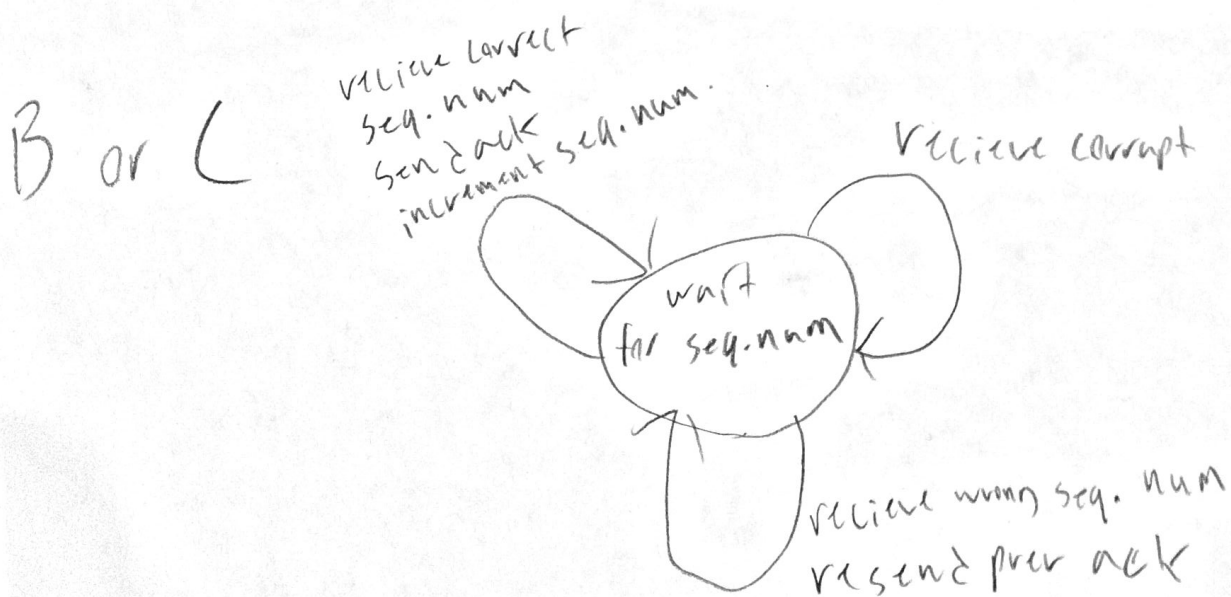 B or C
recieve correct
seq. num
send ack
increment seq. num.
recieve corrupt
wait
for seq. num
recieve wrong seq. num
resend prev ack